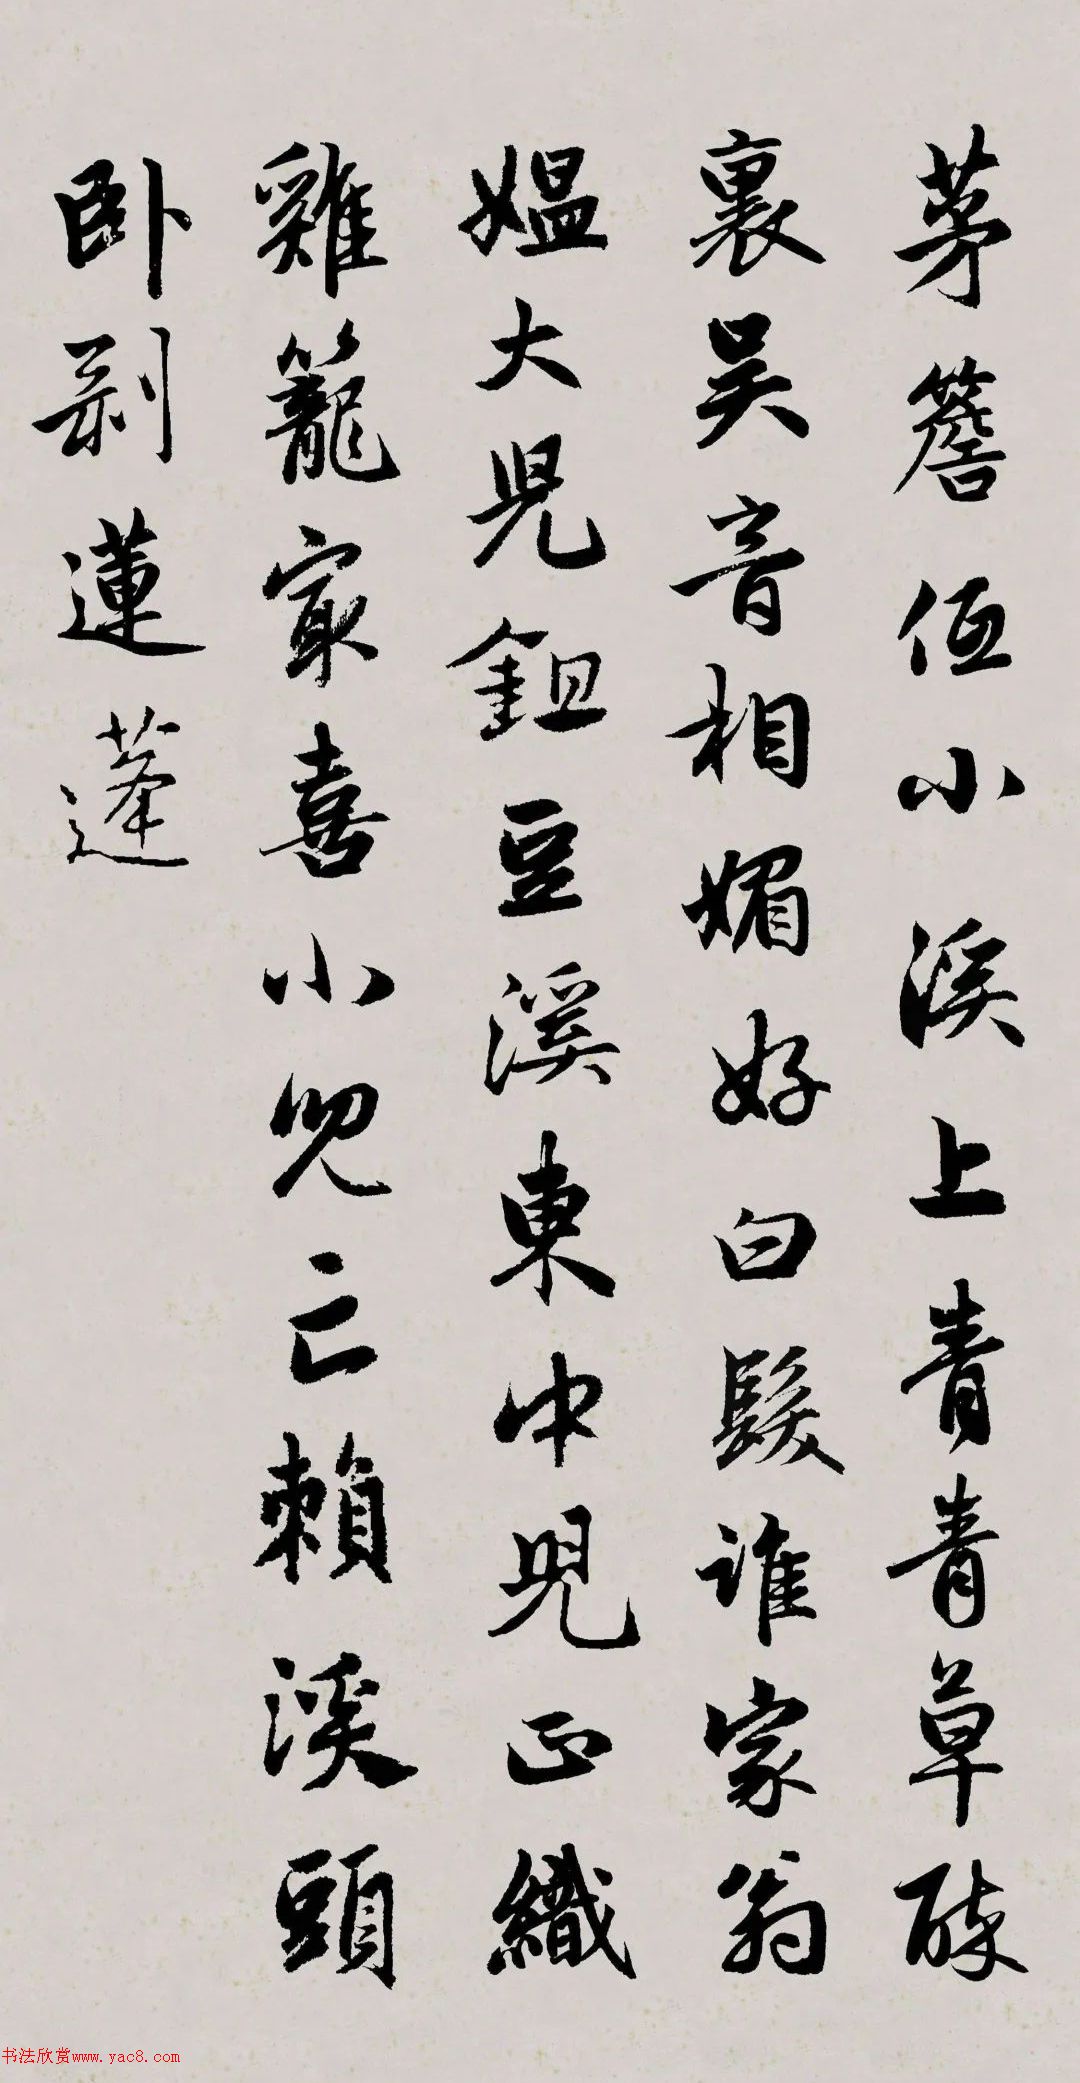 茅簷低小溪上青青草醉
裏吳音相媚好白髮誰家翁
媼大兒鉏豆溪東中兒正織
雞籠最喜小兒亡賴溪頭
臥剥蓮蓬
书法欣赏www.yac8.com